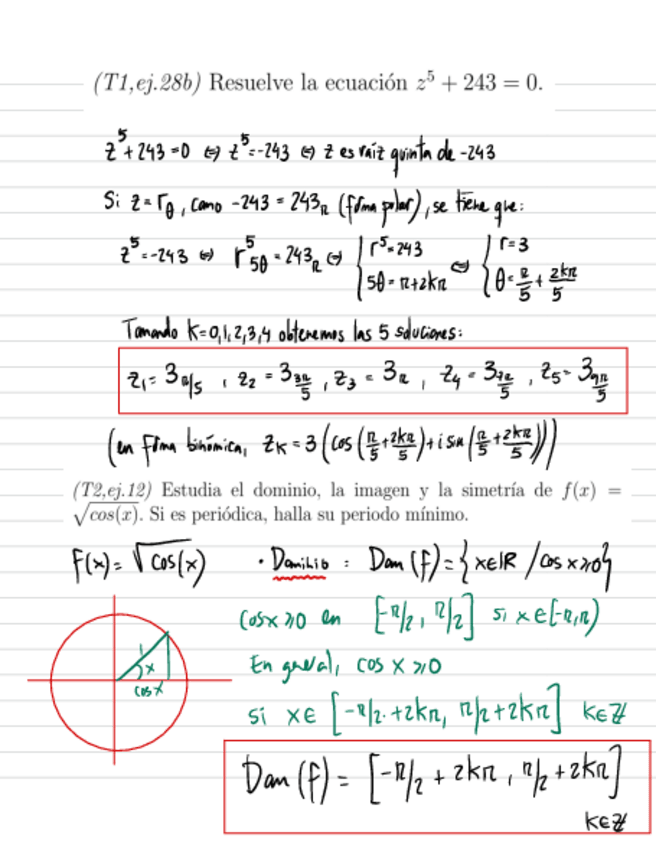 (T1,ej.28b) Resuelve la ecuación z⁵ + 243 = 0.
z⁵+243=0 ⇔ z⁵=-243 ⇔ z es raíz quinta de -243
Si z=r_θ, como -243 = 243_π (forma polar), se tiene que:
z⁵=-243 ⇔ r⁵_5θ = 243_π ⇔ { r⁵=243 ; 5θ=π+2kπ ⇔ { r=3 ; θ=π/5 + 2kπ/5
Tomando k=0,1,2,3,4 obtenemos las 5 soluciones:
z₁=3_π/5 , z₂=3_3π/5 , z₃=3_π , z₄=3_7π/5 , z₅=3_9π/5
(en forma binómica, z_k=3(cos(π/5+2kπ/5)+i sen(π/5+2kπ/5)))
(T2,ej.12) Estudia el dominio, la imagen y la simetría de f(x) =
√cos(x). Si es periódica, halla su periodo mínimo.
F(x)=√cos(x) · Dominio : Dom(f)={x∈ℝ / cos x≥0}
cos x≥0 en [-π/2, π/2] si x∈[-π,π)
1
x
cos x
En gneral, cos x≥0
si x∈[-π/2+2kπ, π/2+2kπ] k∈ℤ
Dom(f) = [-π/2 + 2kπ, π/2 + 2kπ]
k∈ℤ